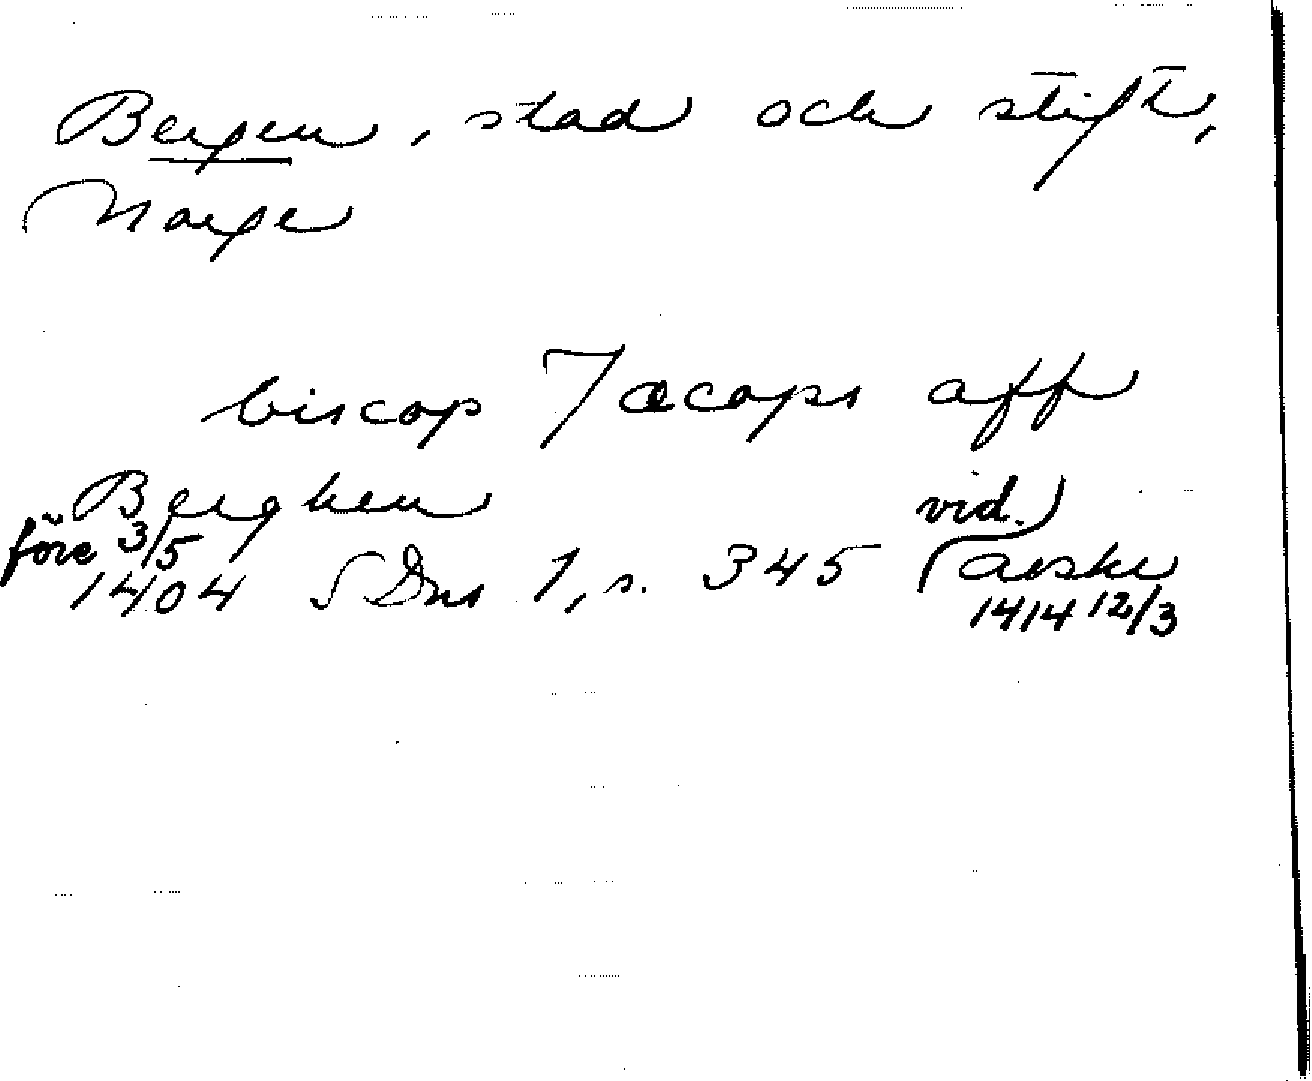 Bergen, stad och stift,
Norge
biscop Jacops aff
Berghen vid.
före 3/5
1404 SDns 1, s. 345 avskr
1414 12/3